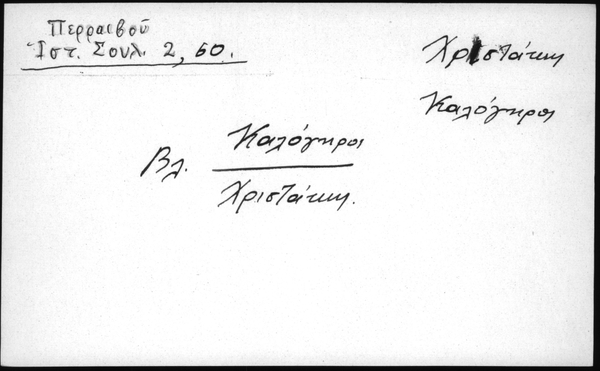 Περραιβού
Ἱστ. Σουλ. 2, 60.
Χριστάκη
Καλόγηροι
Βλ. Καλόγηροι
Χριστάκη.